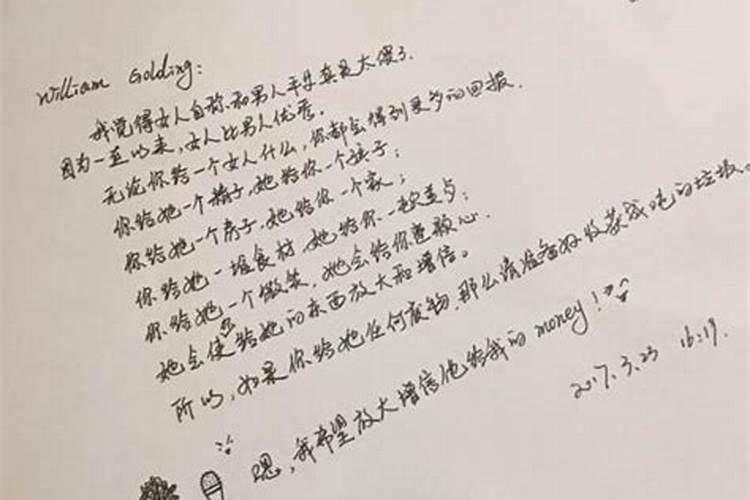 William Golding:
我觉得女人自称和男人平等真是太傻了.
因为一直以来,女人比男人优秀.
无论你给一个女人什么,你都会得到更多的回报.
你给她一个精子,她给你一个孩子;
你给她一个房子,她给你一个家;
你给她一堆食材,她给你一顿美餐;
你给她一个微笑,她会给你整颗心.
她会使你给她的东西放大和增倍。
所以,如果你给她任何废物,那么请准备好收获成吨的垃圾。
嗯,我希望放大增倍他给我的money!
2017.3.23 16:19.